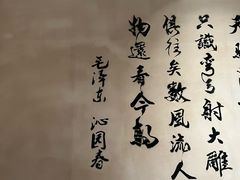 只識彎弓射大雕
俱往矣數風流人
物還看今朝
毛澤東 沁園春